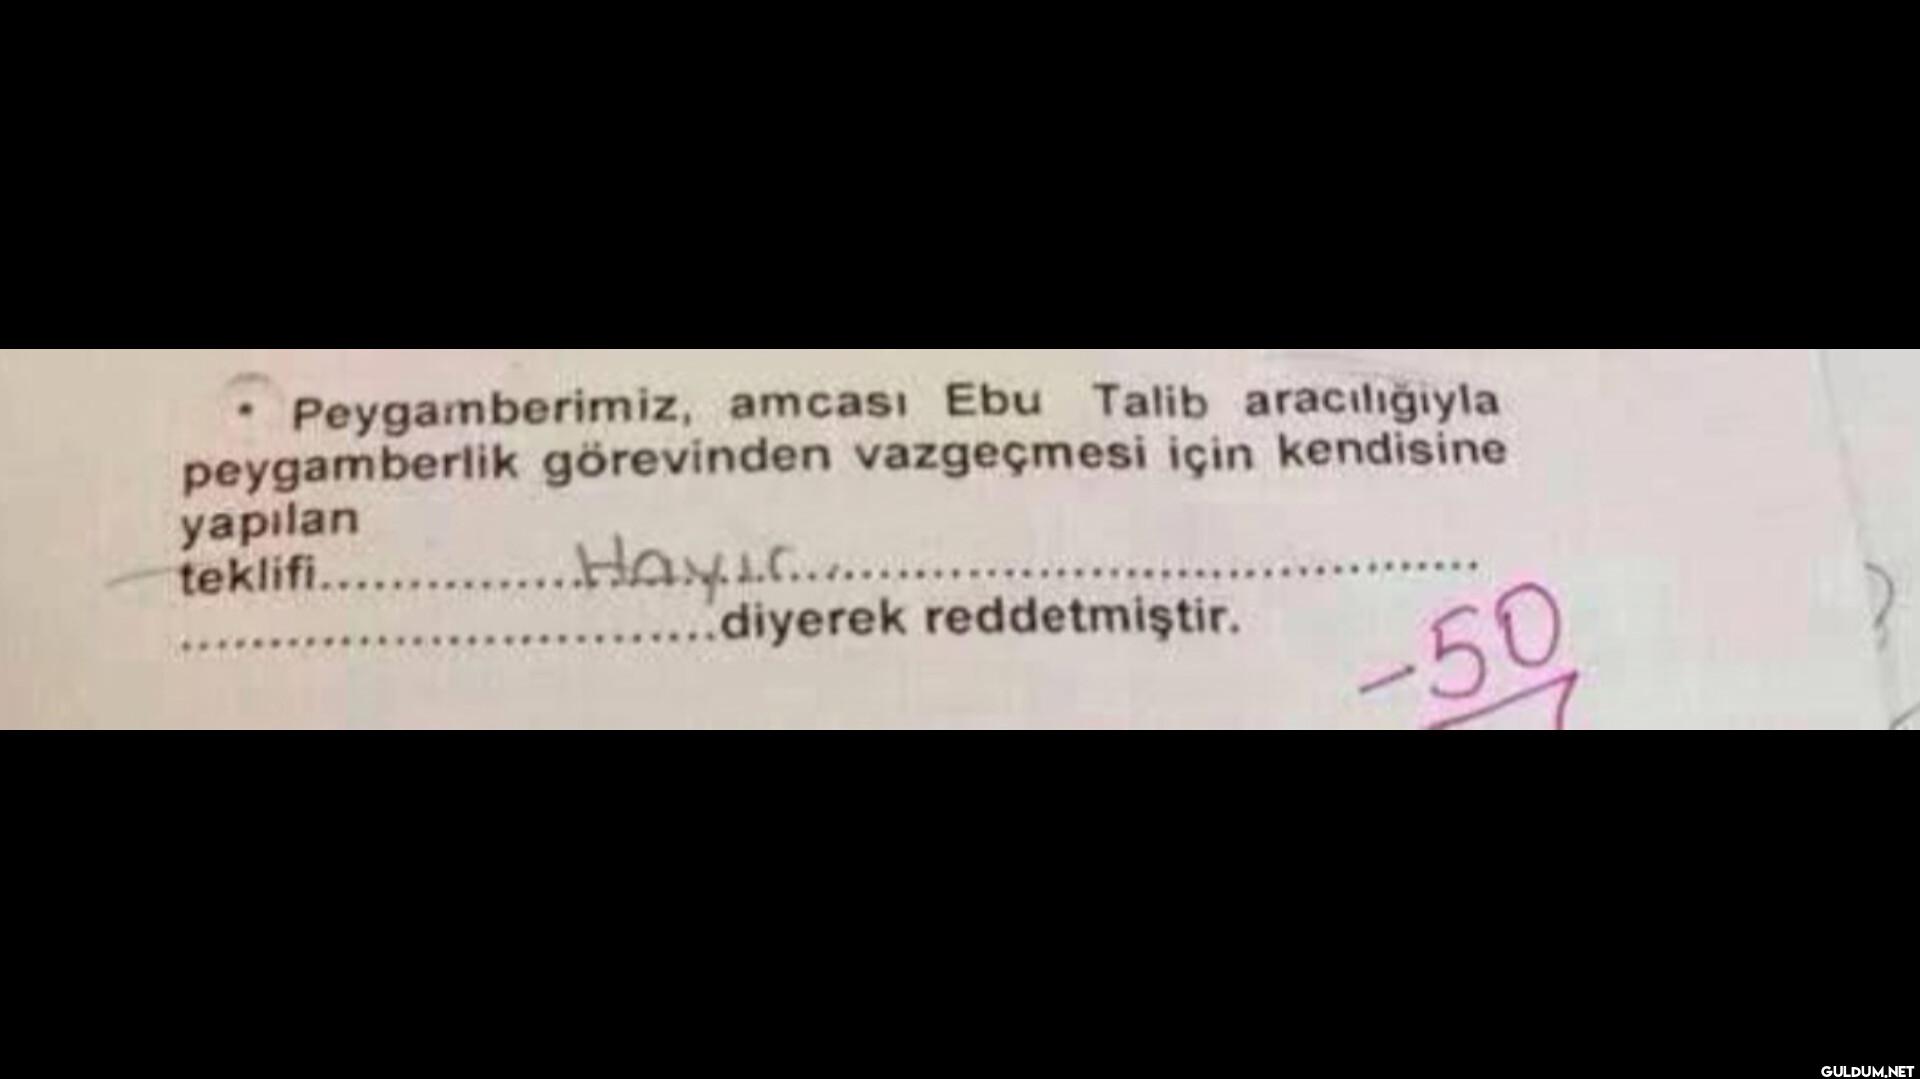 • Peygamberimiz, amcası Ebu Talib aracılığıyla
peygamberlik görevinden vazgeçmesi için kendisine
yapılan
teklifi...............Hayır...............................................
................................diyerek reddetmiştir.
-50
?
GULDUM.NET